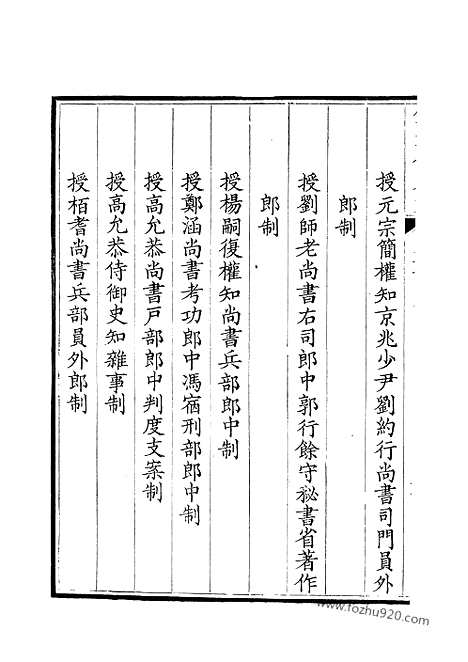 授元宗簡權知京兆少尹劉約行尚書司門員外
郎制
授劉師老尚書右司郎中郭行餘守秘書省著作
郎制
授楊嗣復權知尚書兵部郎中制
授鄭涵尚書考功郎中馮宿刑部郎中制
授高允恭尚書戸部郎中判度支案制
授高允恭侍御史知雜事制
授栢耆尚書兵部員外郎制
www.fozhu920.com